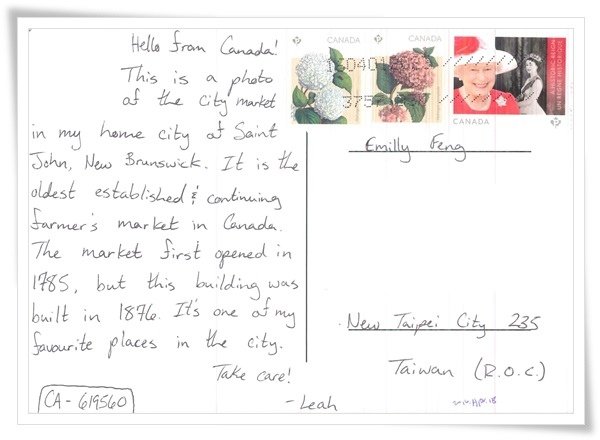 Hello from Canada!
This is a photo
of the city market
in my home city of Saint
John, New Brunswick. It is the
oldest established & continuing
farmer's market in Canada.
The market first opened in
1785, but this building was
built in 1876. It's one of my
favourite places in the city.
Take care!
- Leah
CA - 619560
CANADA
CANADA
CANADA
P
P
P
Emilly Feng
New Taipei City 235
Taiwan (R.O.C.)